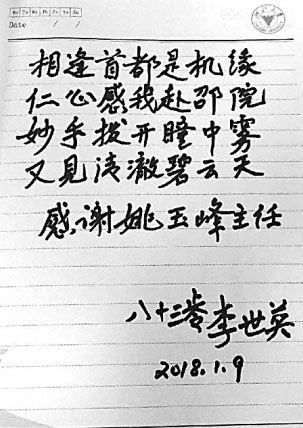 Mo Tu We Th Fr Sa Su
Date / /
相逢首都是机缘
仁心感我赴邵院
妙手拨开瞳中雾
又见清澈碧云天
感谢姚玉峰主任
八十三岁李世英
2018.1.9